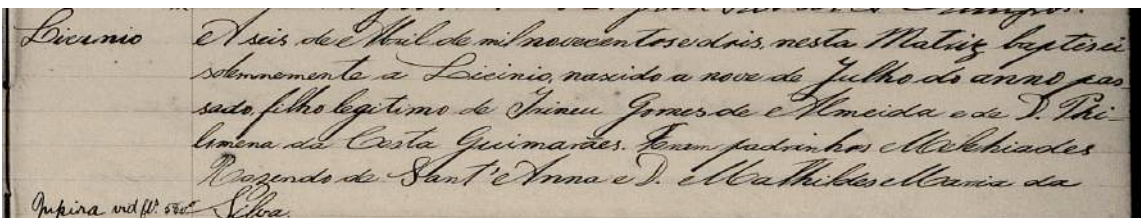 Licinio A seis de Abril de mil novecentos e dois, nesta Matriz baptisei
solemnemente a Licinio, nascido a nove de Julho do anno pas-
sado, filho legitimo de Irineu Gomes de Almeida e de D. Phi-
limena da Costa Guimarães. Foram padrinhos Melchiades
Rozendo de Sant'Anna e D. Mathildes Maria da
Silva.
Jupira vid fl.